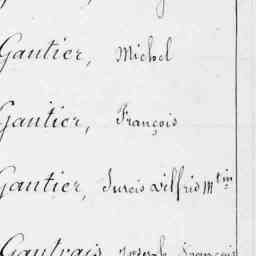 Gautier, Michel
Gautier, François
Gautier, Wilfrid
Gautrais, Joseph François